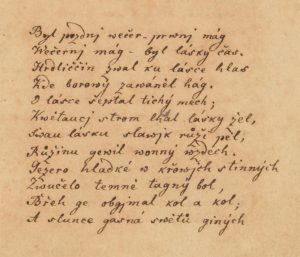 Byl pozdnj večer – prwnj mág
Wečernj mág – byl lásky čas.
Hrdliččin zwal ku lásce hlas
Kde borowý zawáněl hág.
O lásce šeptal tichý mech;
Kwětaucj strom lhal lásky žel,
Swau lásku slawjk růži pěl,
Růžinu gewil wonný wzdech.
Gezero hladké w křowjch stinných
Zwučelo temně tagný bol,
Břeh ge obgjmal kol a kol;
A slunce gasná swětů giných